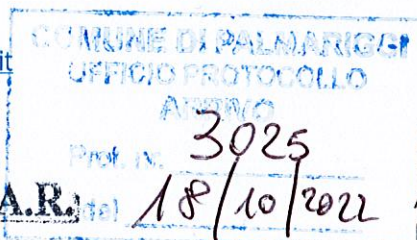 it
COMUNE DI PALMARIGGI
UFFICIO PROTOCOLLO
ARRIVO
Prot. nr. 3025
A.R. del 18/10/2022